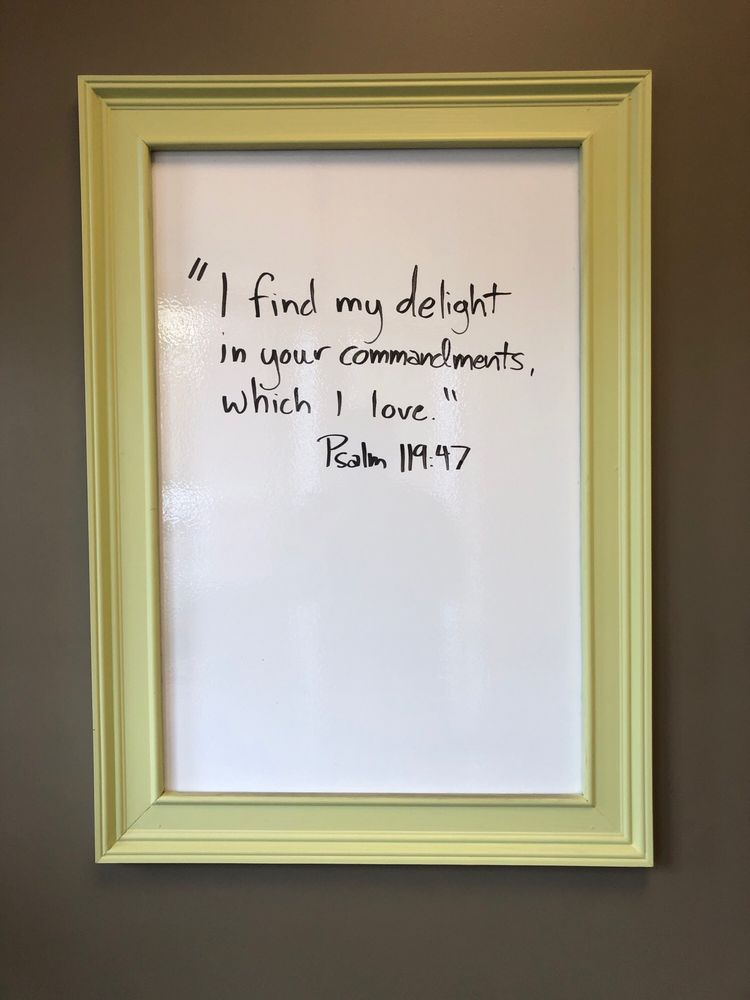 "I find my delight
in your commandments,
which I love."
Psalm 119:47